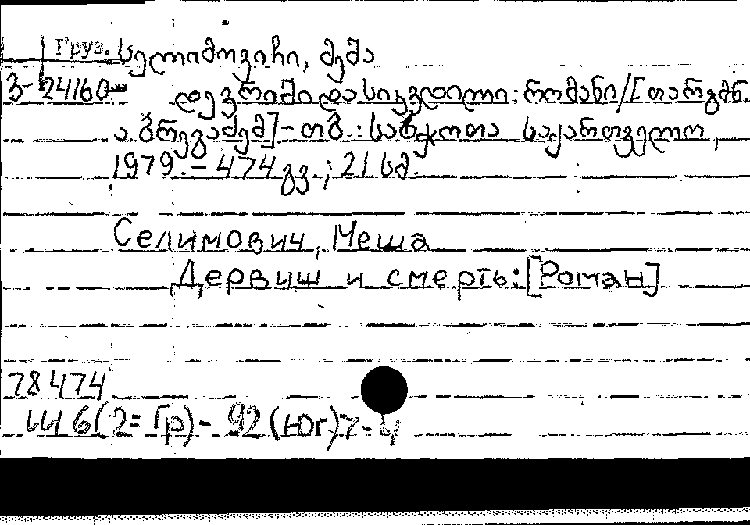 Груз. სელიმოვიჩი, მეშა
3-24160 დევრიში და სიკვდილი: რომანი/[თარგმნ.
ა. გრიგაძემ] - თბ.: საბჭოთა საქართველო,
1979. - 474 გვ.; 21 სმ.
Селимович, Меша
Дервиш и смерть: [Роман]
78474
И6(2=Гр)-92(Юг)7-4